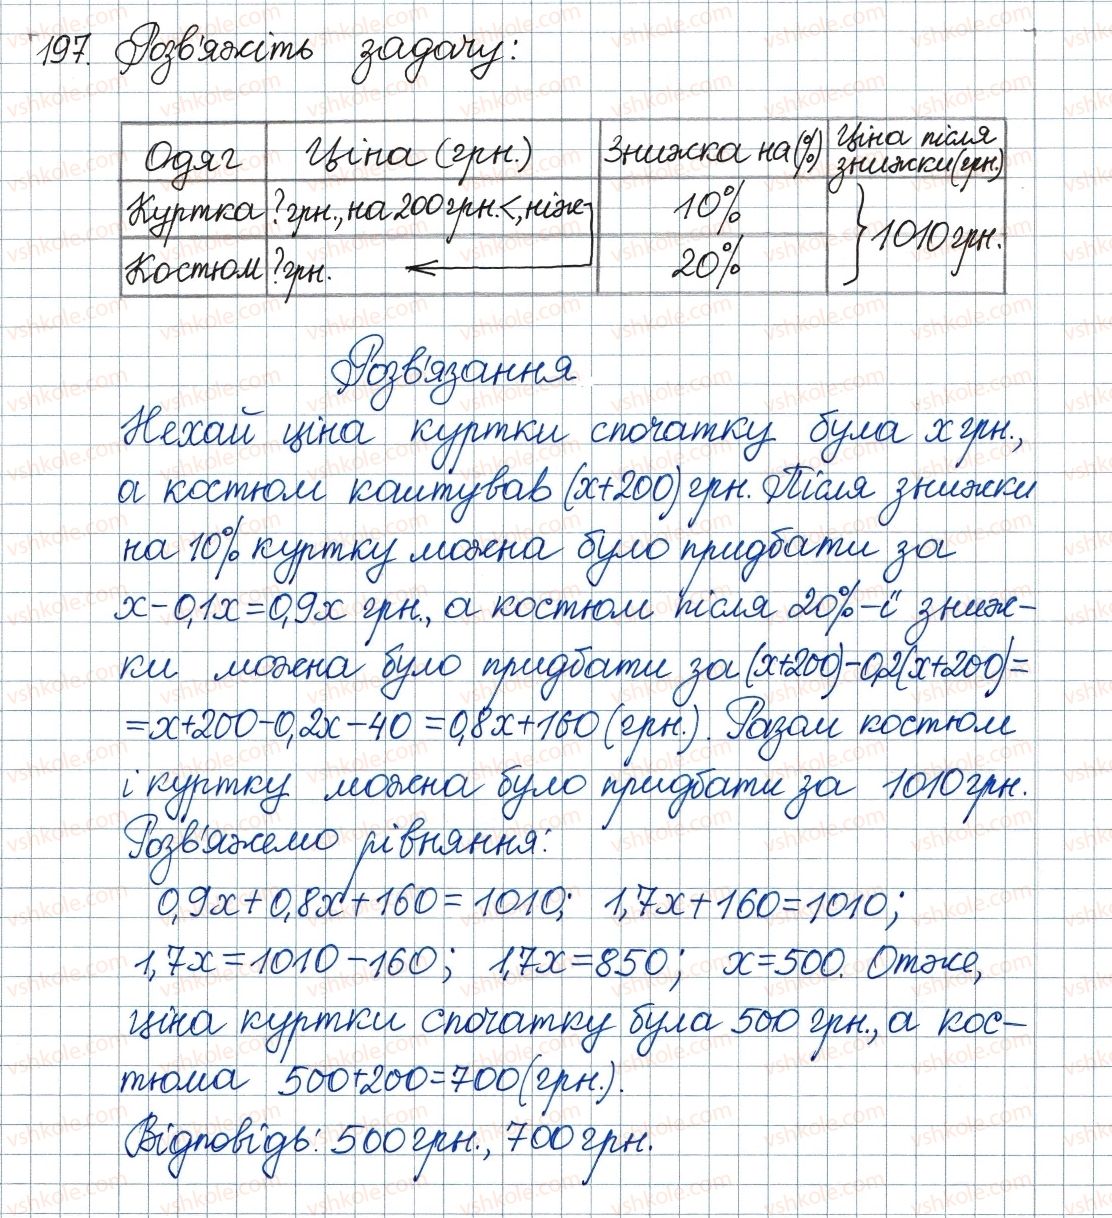 197. Розв'яжіть задачу:
Одяг Ціна (грн.) Знижка на (%) Ціна після знижки (грн.)
Куртка ? грн., на 200 грн. <, ніж 10%
Костюм ? грн. 20%
1010 грн.
Розв'язання
Нехай ціна куртки спочатку була x грн.,
а костюм каштував (x+200) грн. Після знижки
на 10% куртку можна було придбати за
x-0,1x=0,9x грн., а костюм після 20%-ї зниж-
ки можна було придбати за (x+200)-0,2(x+200)=
=x+200-0,2x-40=0,8x+160 (грн.). Разом костюм
і куртку можна було придбати за 1010 грн.
Розв'яжемо рівняння:
0,9x+0,8x+160=1010; 1,7x+160=1010;
1,7x=1010-160; 1,7x=850; x=500. Отже,
ціна куртки спочатку була 500 грн., а кос-
тюма 500+200=700 (грн.).
Відповідь: 500 грн., 700 грн.